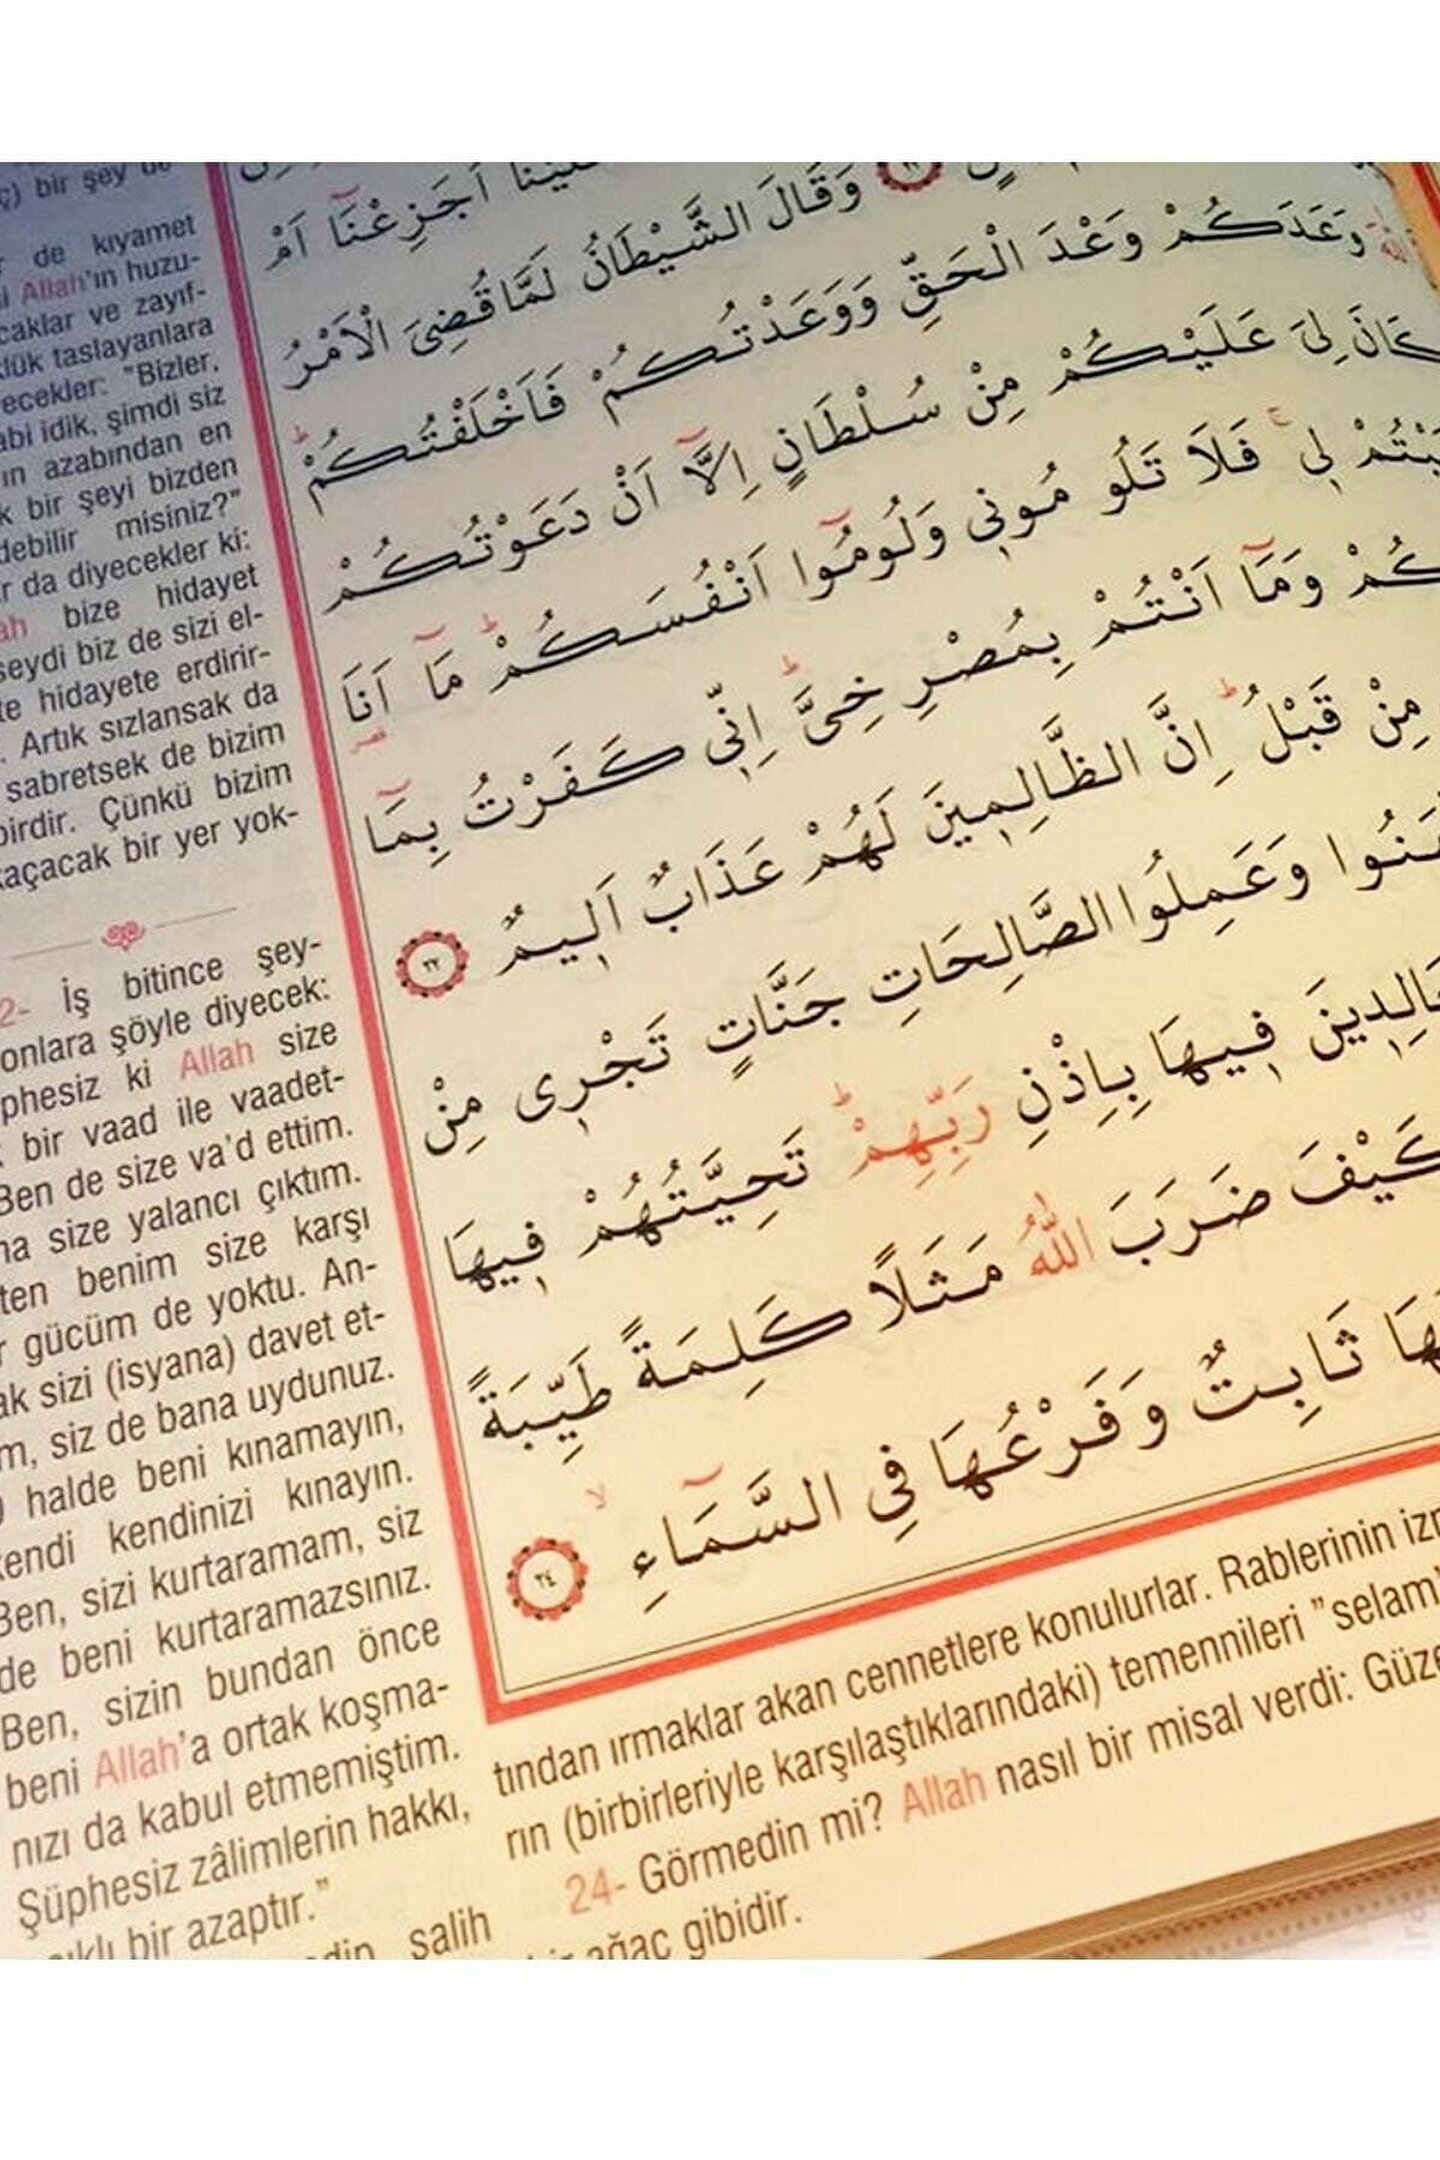 bir şey
de kıyamet
Allah'ın huzu-
caklar ve zayıf-
lük taslayanlara
ecekler: "Bizler,
abi idik, şimdi siz
ın azabından en
k bir şeyi bizden
debilir misiniz?"
r da diyecekler ki:
ah bize hidayet
seydi biz de sizi el-
te hidayete erdirir-
. Artık sızlansak da
sabretsek de bizim
birdir. Çünkü bizim
kaçacak bir yer yok-
2- İş bitince şey-
onlara şöyle diyecek:
phesiz ki Allah size
k bir vaad ile vaadet-
Ben de size va'd ettim.
ma size yalancı çıktım.
ten benim size karşı
r gücüm de yoktu. An-
ak sizi (isyana) davet et-
m, siz de bana uydunuz.
halde beni kınamayın,
kendi kendinizi kınayın.
Ben, sizi kurtaramam, siz
de beni kurtaramazsınız.
Ben, sizin bundan önce
beni Allah'a ortak koşma-
nızı da kabul etmemiştim.
Şüphesiz zâlimlerin hakkı,
bir azaptır."
salih
اَجَزِعْنَٓا اَمْ
وَقَالَ الشَّيْطَانُ لَمَّا قُضِىَ الْاَمْرُ
وَعَدَكُمْ وَعْدَ الْحَقِّ وَوَعَدْتُكُمْ فَاَخْلَفْتُكُمْ ط
كَانَ لِىَ عَلَيْكُمْ مِنْ سُلْطَانٍ اِلَّٓا اَنْ دَعَوْتُكُمْ
لِى ج فَلَا تَلُومُونِى وَلُومُٓوا اَنْفُسَكُمْ ط مَٓا اَنَا
وَمَٓا اَنْتُمْ بِمُصْرِخِىَّ ط اِنِّى كَفَرْتُ بِمَٓا
مِنْ قَبْلُ ط اِنَّ الظَّالِمِينَ لَهُمْ عَذَابٌ اَلِيمٌ ٢٢
وَعَمِلُوا الصَّالِحَاتِ جَنَّاتٍ تَجْرِى مِنْ
فِيهَا بِاِذْنِ رَبِّهِمْ ط تَحِيَّتُهُمْ فِيهَا
كَيْفَ ضَرَبَ اللّٰهُ مَثَلًا كَلِمَةً طَيِّبَةً
ثَابِتٌ وَفَرْعُهَا فِى السَّمَٓاءِ لا ٢٤
tından ırmaklar akan cennetlere konulurlar. Rablerinin
rın (birbirleriyle karşılaştıklarındaki) temennileri "selam"
24- Görmedin mi? Allah nasıl bir misal verdi:
ağaç gibidir.